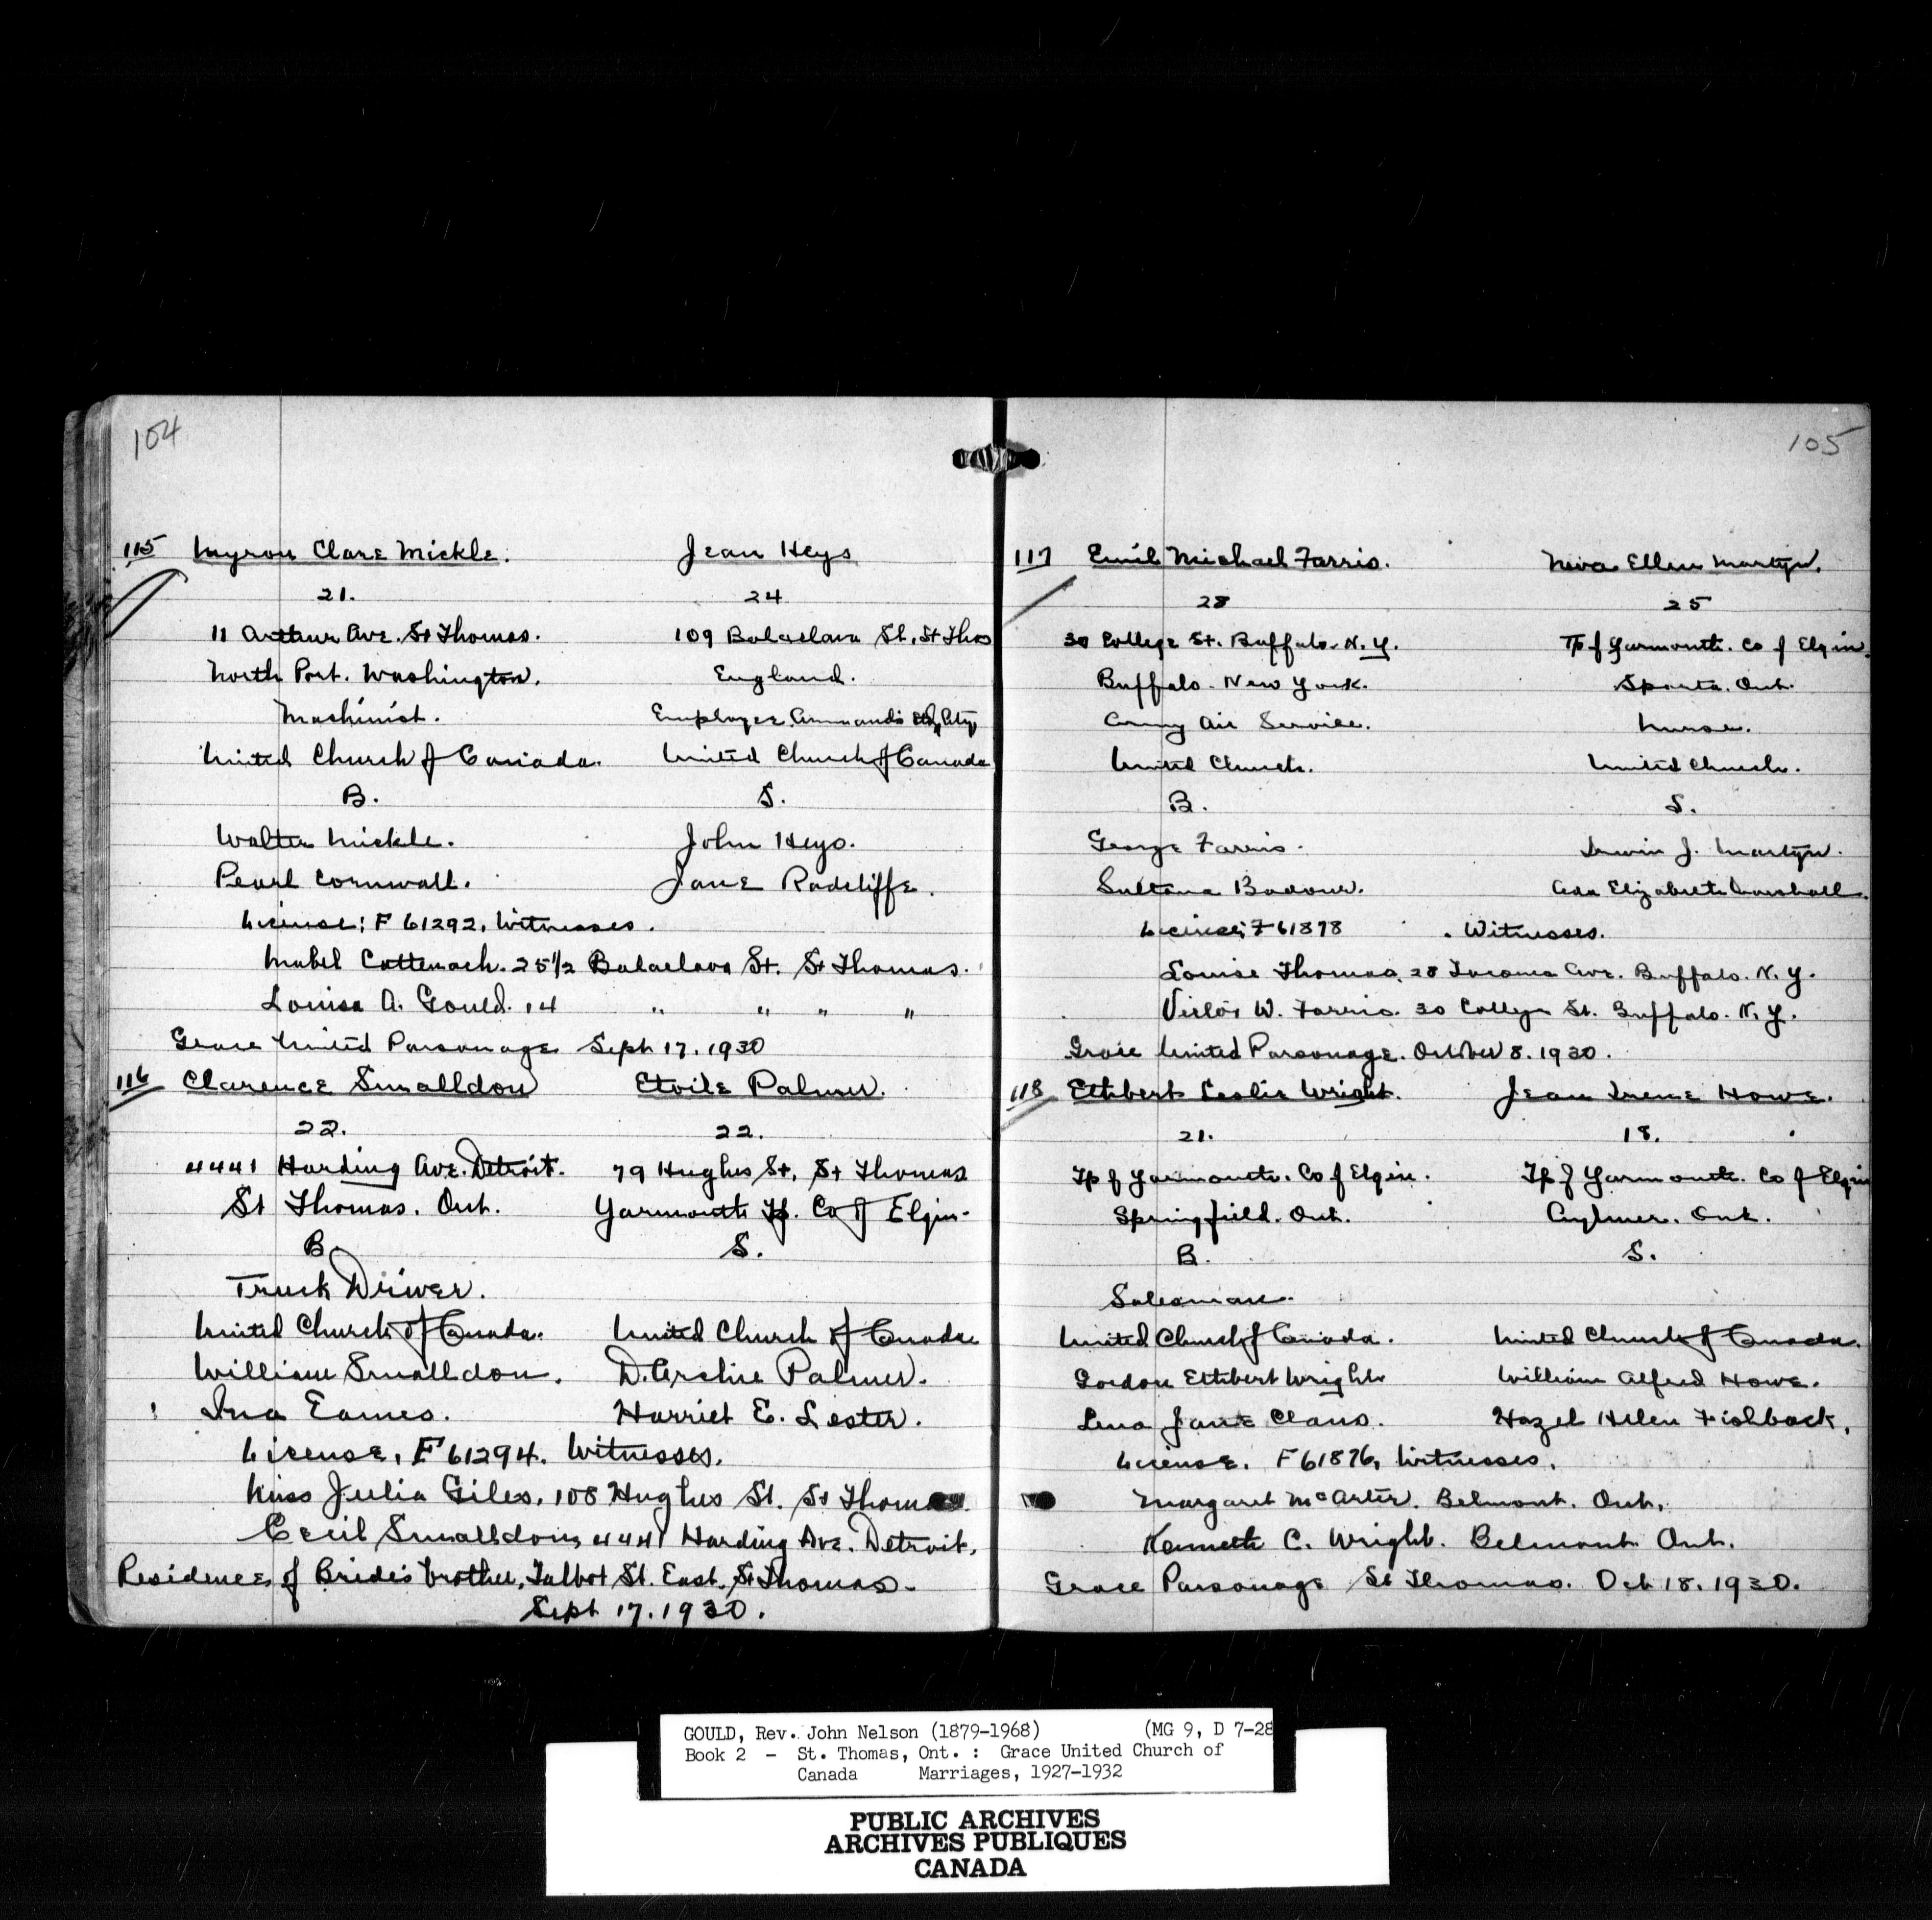 104
115 Myron Clare Mickle. Jean Heys
21. 24
11 Arthur Ave. St Thomas. 109 Balaclava St. St Thos
North Port. Washington. England.
Machinist. Employee
United Church of Canada. United Church of Canada
B. S.
Walter Mickle. John Heys.
Pearl Cornwall. Jane Radcliffe.
License: F 61292. Witnesses.
Mabel Cattenach. 25 1/2 Balaclava St. St Thomas.
Louisa A. Gould. 14 " " " "
Grace United Parsonage Sept 17. 1930
116 Clarence Smalldon Etoile Palmer.
22. 22.
4441 Harding Ave. Detroit. 79 Hughes St, St Thomas
St Thomas. Ont. Yarmouth Tp. Co of Elgin.
B. S.
Truck Driver.
United Church of Canada. United Church of Canada
William Smalldon. D. Archie Palmer.
Ina Eames. Harriet E. Lester.
License. F 61294. Witnesses.
Miss Julia Giles. 108 Hughes St. St Thomas.
Cecil Smalldon, 4441 Harding Ave. Detroit.
Residence of Bride's brother, Talbot St. East. St Thomas.
Sept 17. 1930.
105
117 Emil Michael Farris. Neva Ellen Martyn.
28 25
30 College St. Buffalo. N. Y. Tp of Yarmouth. Co of Elgin.
Buffalo. New York. Sparta. Ont.
Army Air Service. Nurse.
United Church. United Church.
B. S.
George Farris. Irwin J. Martyn.
Sultana Badour. Ada Elizabeth Marshall.
License; F 61878 . Witnesses.
Louise Thomas, 28 Tacoma Ave. Buffalo. N. Y.
Victor W. Farris. 30 College St. Buffalo. N. Y.
Grace United Parsonage. October 8. 1930.
118 Ethbert Leslie Wright. Jean Irene Howe.
21. 18.
Tp of Yarmouth. Co of Elgin. Tp of Yarmouth. Co of Elgin
Springfield. Ont. Aylmer. Ont.
B. S.
Salesman.
United Church of Canada. United Church of Canada.
Gordon Ethbert Wright William Alfred Howe.
Lena Jane Claus. Hazel Helen Fishback.
License. F 61876, Witnesses.
Margaret McArter. Belmont. Ont.
Kenneth C. Wright. Belmont Ont.
Grace Parsonage St Thomas. Oct 18. 1930.
GOULD, Rev. John Nelson (1879-1968) (MG 9, D 7-28
Book 2 - St. Thomas, Ont. : Grace United Church of
Canada Marriages, 1927-1932
PUBLIC ARCHIVES
ARCHIVES PUBLIQUES
CANADA